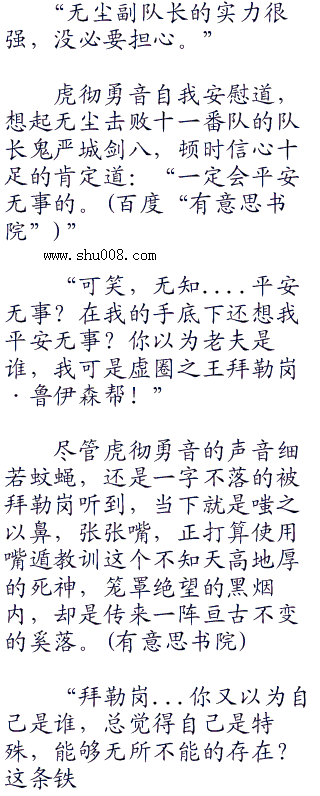 “无尘副队长的实力很
强，没必要担心。”
虎彻勇音自我安慰道，
想起无尘击败十一番队的队
长鬼严城剑八，顿时信心十
足的肯定道：“一定会平安
无事的。(百度“有意思书
院”)”
www.shu008.com
“可笑，无知....平安
无事？在我的手底下还想我
平安无事？你以为老夫是
谁，我可是虚圈之王拜勒岗
·鲁伊森帮！”
尽管虎彻勇音的声音细
若蚊蝇，还是一字不落的被
拜勒岗听到，当下就是嗤之
以鼻，张张嘴，正打算使用
嘴遁教训这个不知天高地厚
的死神，笼罩绝望的黑烟
内，却是传来一阵亘古不变
的奚落。(有意思书院)
“拜勒岗...你又以为自
己是谁，总觉得自己是特
殊，能够无所不能的存在？
这条铁